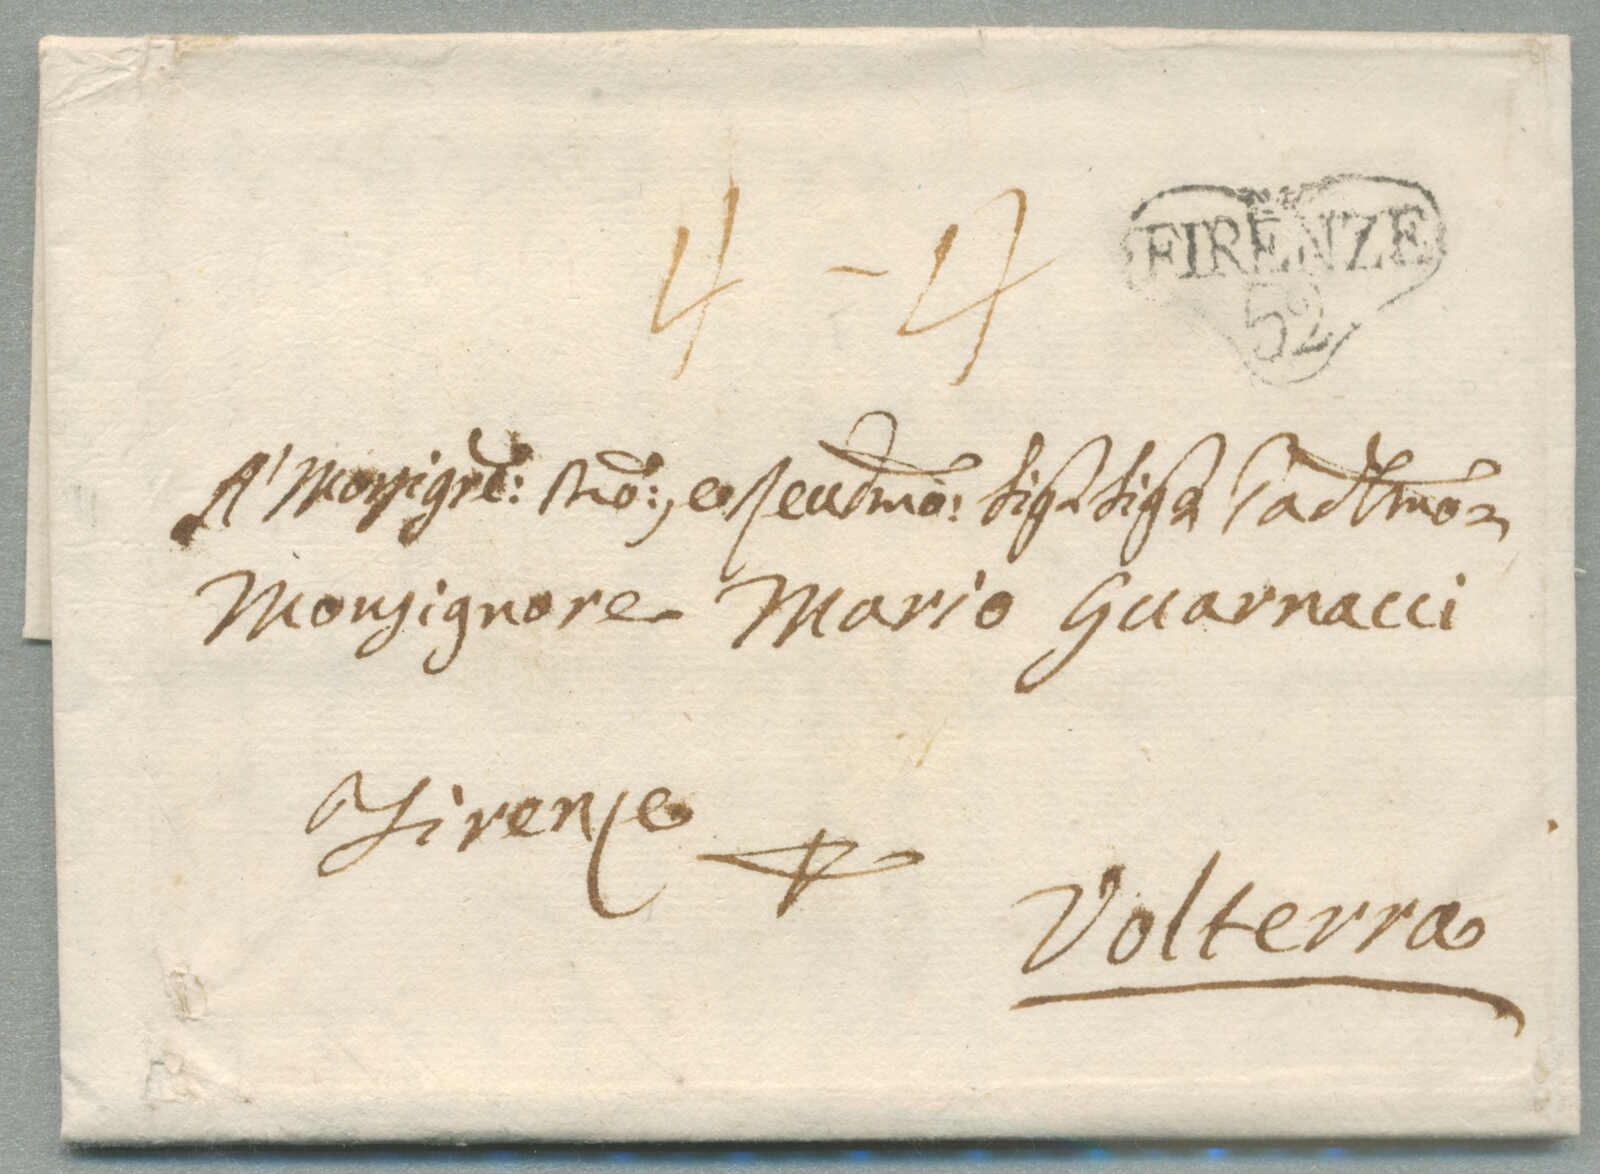 4 - 4
FIRENZE
52
A' Monsigre: Rmo:, e Reudmo: Sigr Sigr Padne
Monsignore Mario Guarnacci
Firenze
Volterra